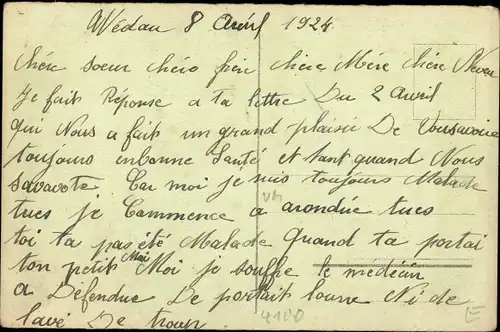 Wédau 8 Avril 1924
Chére soeur chéro frére chére Mére chére Neveu
Je fait Réponse a ta lettre Du 2 Avril
qui Nous a fait un grand plaisir De Vousavoire
toujours enbonne Santé et tant quand Nous
savavote Car moi je suis toujours Malade
tues je Commence a arondue tues
toi ta pas été Malade quand ta portai
ton petit Mai Moi je souffre le médécin
a Défendue De portait lourre Ni de
lavé De trop
4120